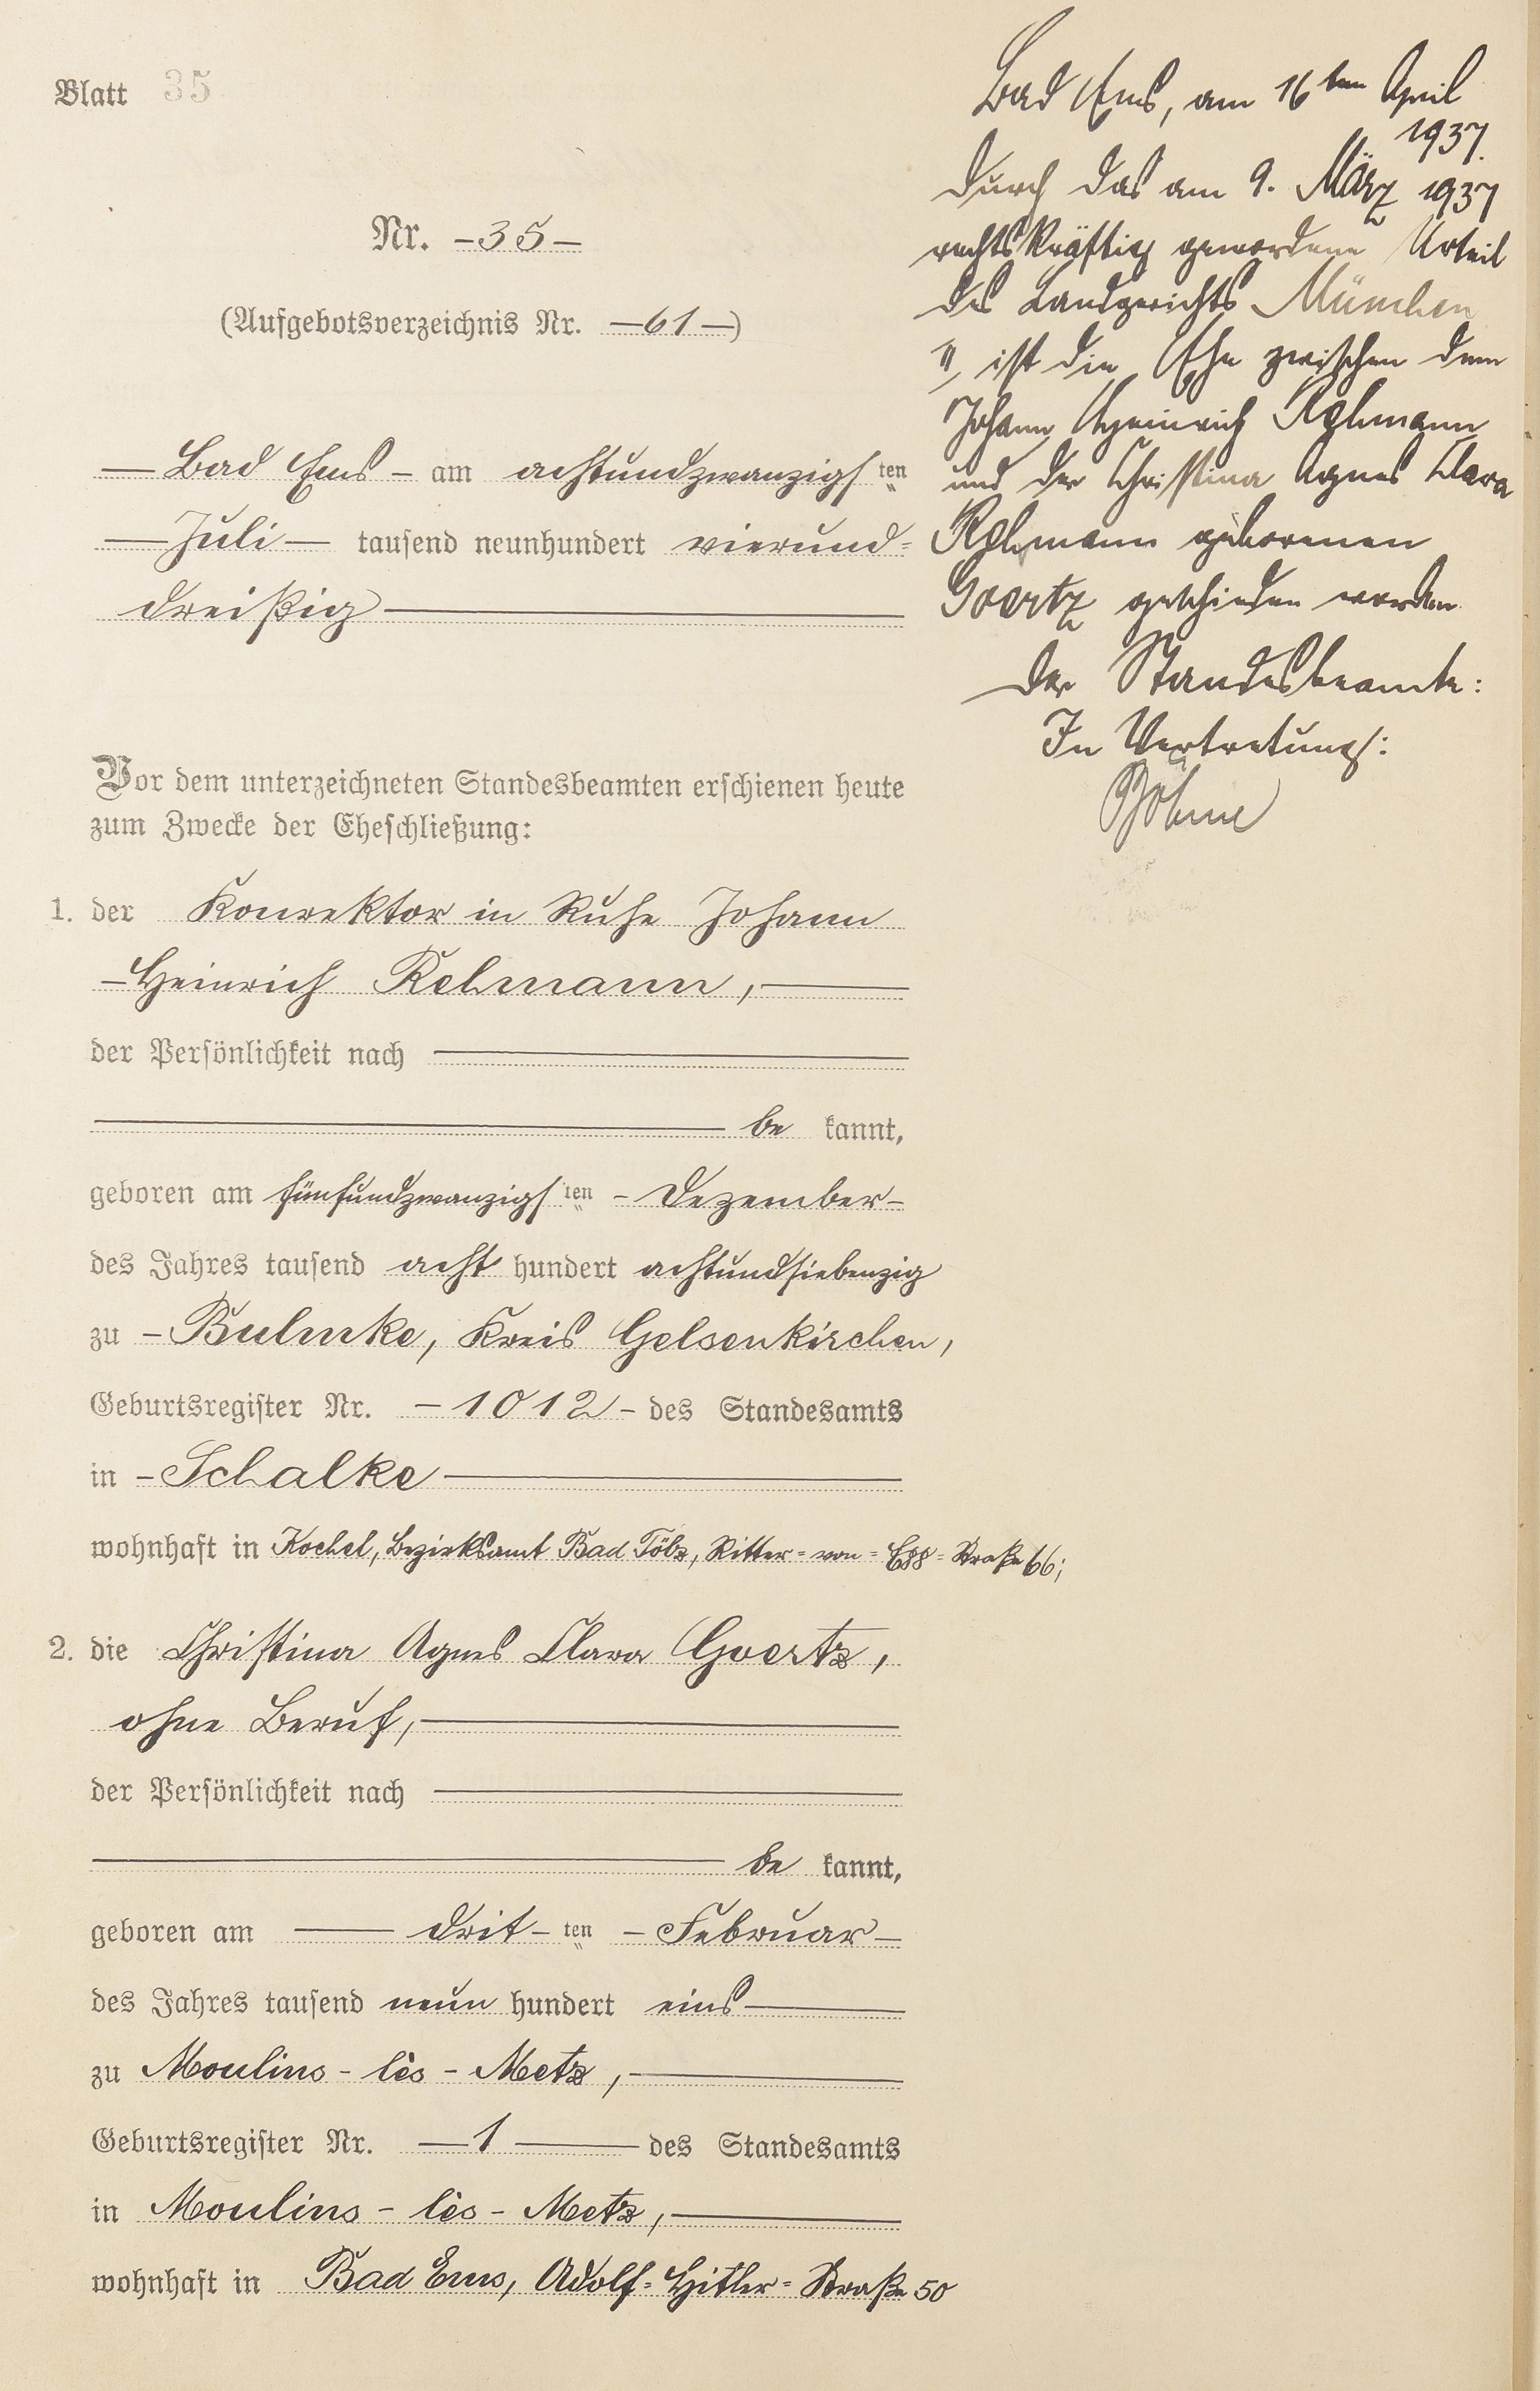 Blatt 35
Nr. -35-
(Aufgebotsverzeichnis Nr. -61-)
Bad Ems - am achtundzwanzigsten
Juli - tausend neunhundert vierund=
dreißig
Vor dem unterzeichneten Standesbeamten erschienen heute
zum Zwecke der Eheschließung:
1. der Konrektor in Ruhe Johann
-Heinrich Rehmann,
der Persönlichkeit nach
be kannt,
geboren am fünfundzwanzigsten - Dezember-
des Jahres tausend acht hundert achtundsiebenzig
zu - Bulmke, Kreis Gelsenkirchen,
Geburtsregister Nr. -1012- des Standesamts
in - Schalke
wohnhaft in Kochel, Bezirksamt Bad Tölz, Ritter=von=Epp=Straße 66;
2. die Christina Agnes Clara Goertz,
ohne Beruf,
der Persönlichkeit nach
be kannt,
geboren am drit-ten - Februar-
des Jahres tausend neun hundert eins
zu Moulins-lès-Metz,
Geburtsregister Nr. -1- des Standesamts
in Moulins-lès-Metz,
wohnhaft in Bad Ems, Adolf=Hitler=Straße 50
Bad Ems, am 16ten April
1937.
Durch das am 9. März 1937
rechtskräftig gewordene Urteil
des Landgerichts München
II, ist die Ehe zwischen dem
Johann Heinrich Rehmann
und der Christina Agnes Clara
Rehmann geborenen
Goertz geschieden worden.
Der Standesbeamte:
In Vertretung:
Böhme